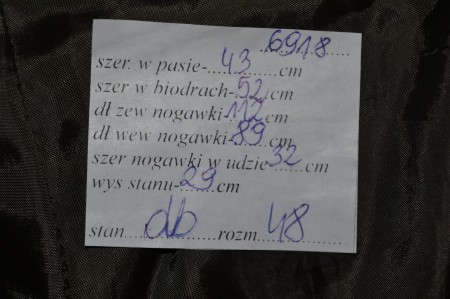 6918
szer. w pasie-....43....cm
szer w biodrach-52.cm
dł zew nogawki-112cm
dł wew nogawki-89cm
szer nogawki w udzie 32 cm
wys stanu-29cm
stan....db....rozm.48